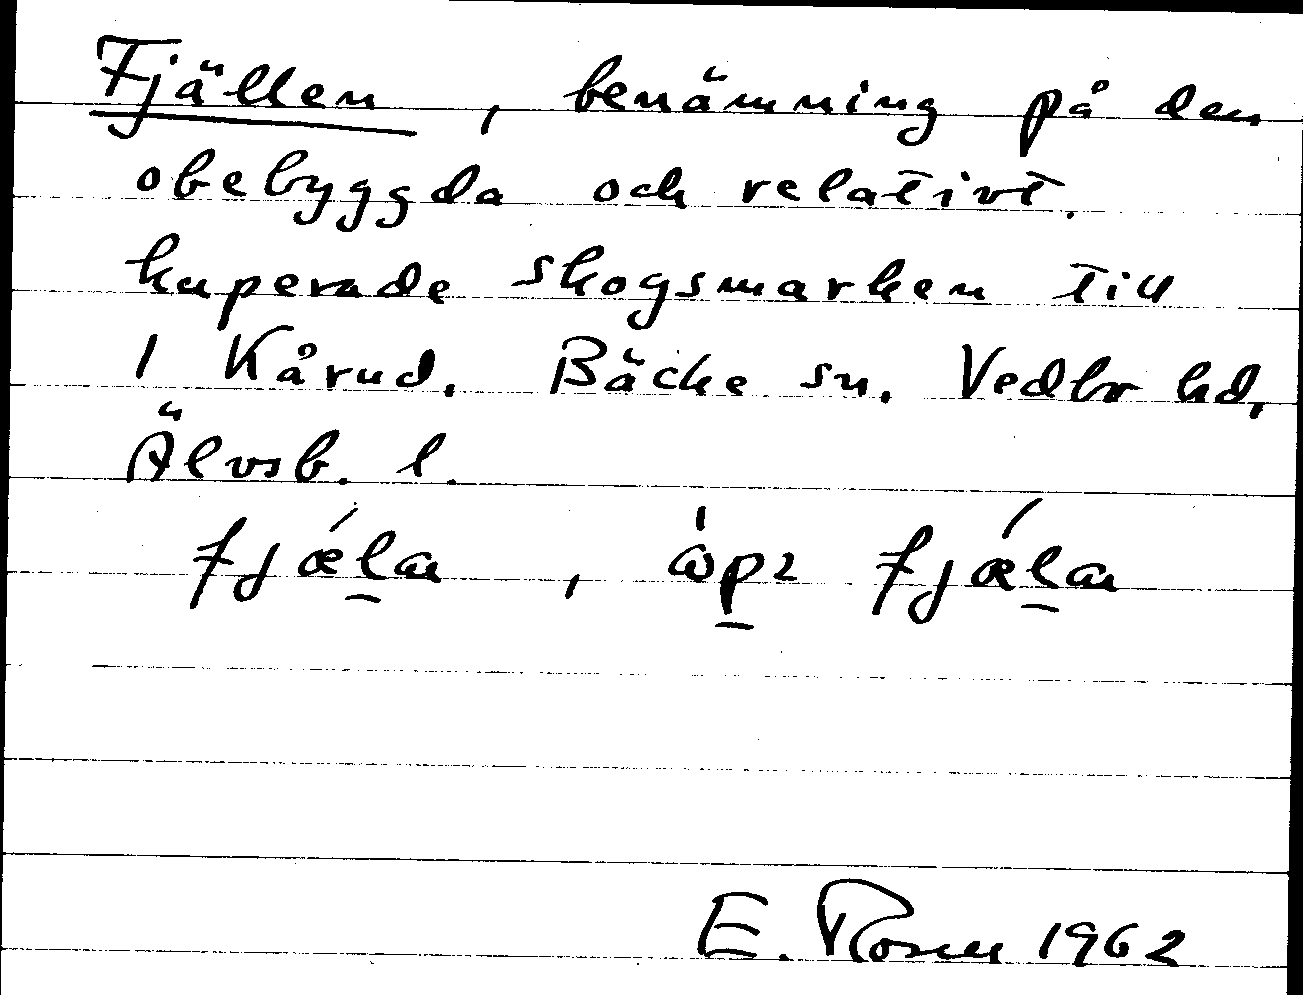 Fjällen, benämning på den
obebyggda och relativt.
kuperade skogsmarken till
1 Kårud. Bäcke sn. Vedbo hd,
Älvsb. l.
fjǽlan, fjǽlan
E. 1962